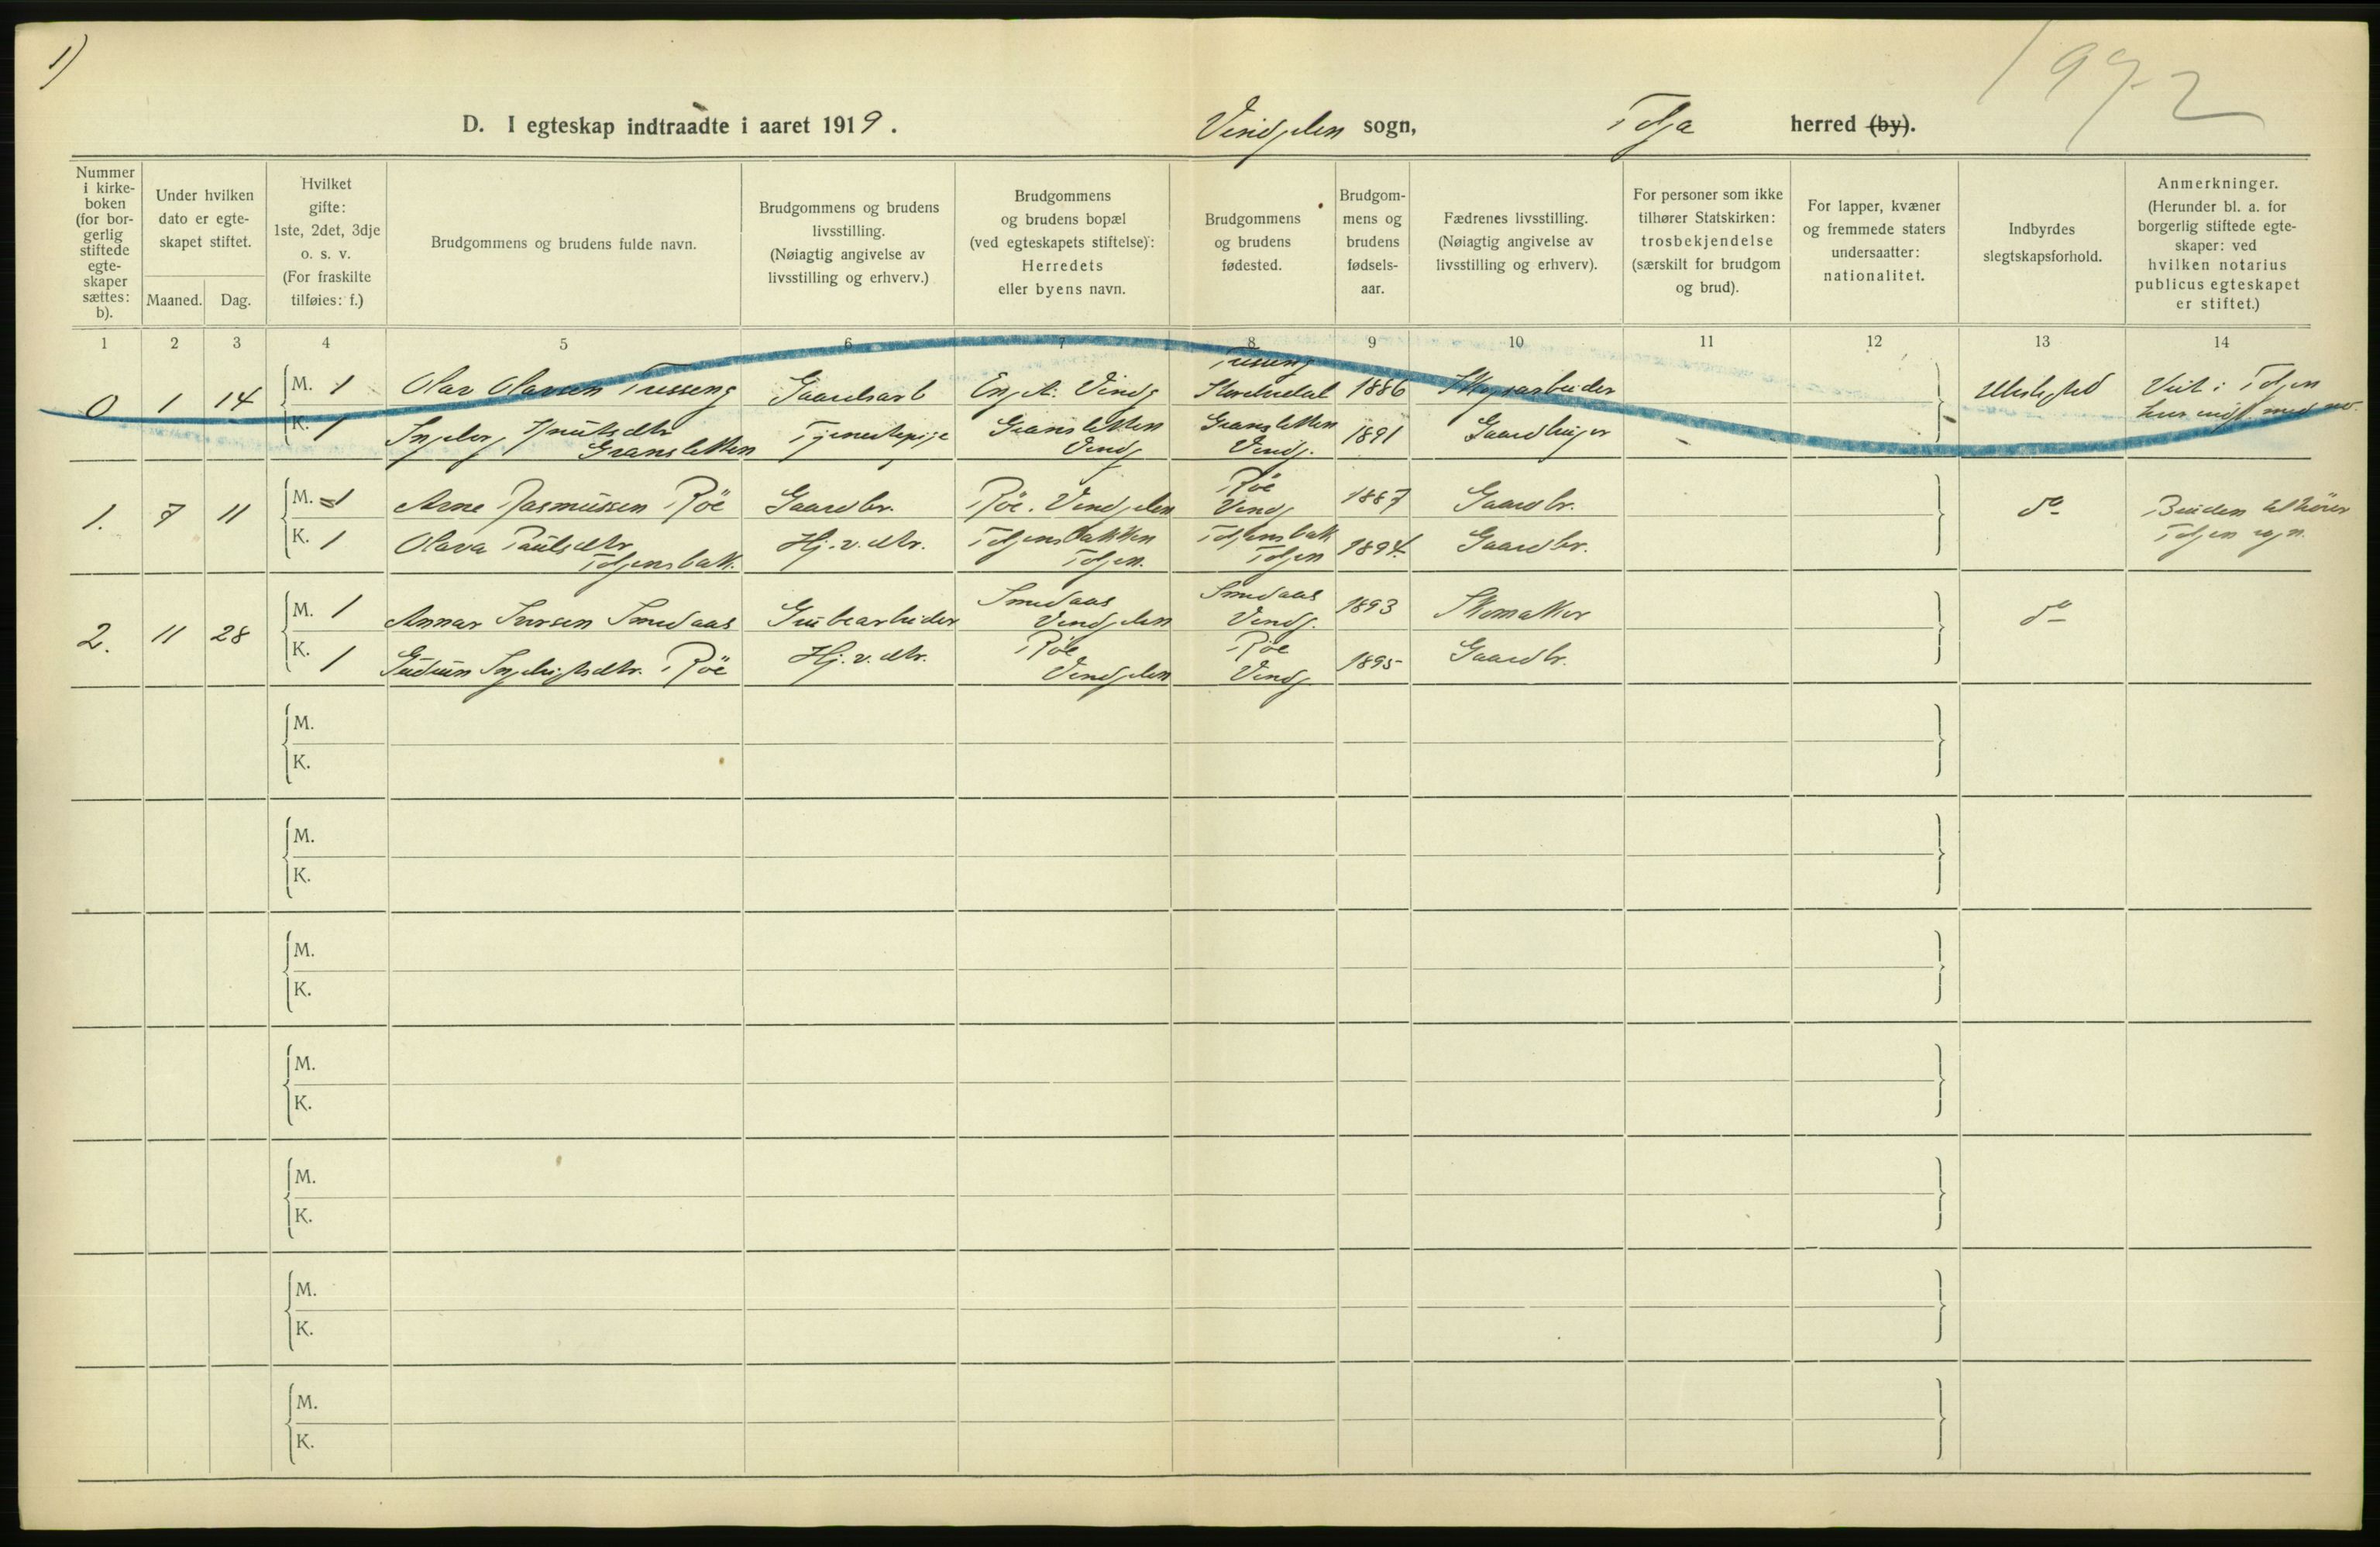 1)
1972
D. I egteskap indtraadte i aaret 1919.
Vingelen sogn, Tolga herred (by).
Nummer i kirke- boken (for bor- gerlig stiftede egte- skaper sættes: b).
Under hvilken dato er egte- skapet stiftet.
Maaned. Dag.
Hvilket gifte: 1ste, 2det, 3dje o. s. v. (For fraskilte tilføies: f.)
Brudgommens og brudens fulde navn.
Brudgommens og brudens livsstilling. (Nøiagtig angivelse av livsstilling og erhverv.)
Brudgommens og brudens bopæl (ved egteskapets stiftelse): Herredets eller byens navn.
Brudgommens og brudens fødested.
Brudgom- mens og brudens fødsels- aar.
Fædrenes livsstilling. (Nøiagtig angivelse av livsstilling og erhverv).
For personer som ikke tilhører Statskirken: trosbekjendelse (særskilt for brudgom og brud).
For lapper, kvæner og fremmede staters undersaatter: nationalitet.
Indbyrdes slegtskapsforhold.
Anmerkninger. (Herunder bl. a. for borgerlig stiftede egte- skaper: ved hvilken notarius publicus egteskapet er stiftet.)
1 2 3 4 5 6 7 8 9 10 11 12 13 14
0 1 14 M. 1 Olav Olavsen Trøseng Gaardsarb Vindg 1886 Ubeslegted Viet i Tolgen
K. 1 Ingeborg Knutsdtr Gransletten Tjenestepige Gransletten Vindg Gransletten Vindg. 1891 Gaardbruger
1. 7 11 M. 1 Arne Rasmussen Röe Gaardbr. Röe. Vindgelen Röe Vindg 1887 Gaardbr. do Bruden tilhörer
K. 1 Olava Paulsdtr Tolgensbak. Hj. v. dtr. Tolgensbakken Tolgen. Tolgensbak Tolgen 1894. Gaardbr. Tolgen sogn.
2. 11 28 M. 1 Annar Iversen Smedaas Grubearbeider Smedaas Vindgelen Smedaas Vindg. 1893 Skomaker do
K. 1 Gudrun Ingebrigtsdtr. Röe Hj. v. dtr. Röe Vindgelen Röe Vindg 1895 Gaardbr.
M.
K.
M.
K.
M.
K.
M.
K.
M.
K.
M.
K.
M.
K.